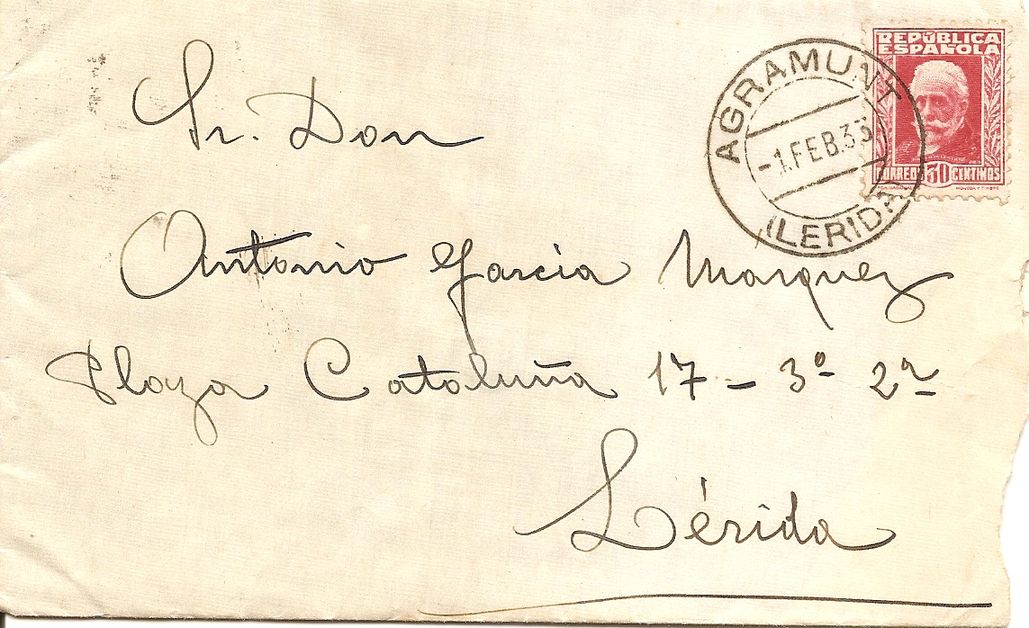 REPÚBLICA
ESPAÑOLA
CORREOS 30 CENTIMOS
AGRAMUNT
-1.FEB.35
(LERIDA)
Sr. Don
Antonio Garcia Marquez
Plaza Cataluña 17 - 3º 2ª
Lérida